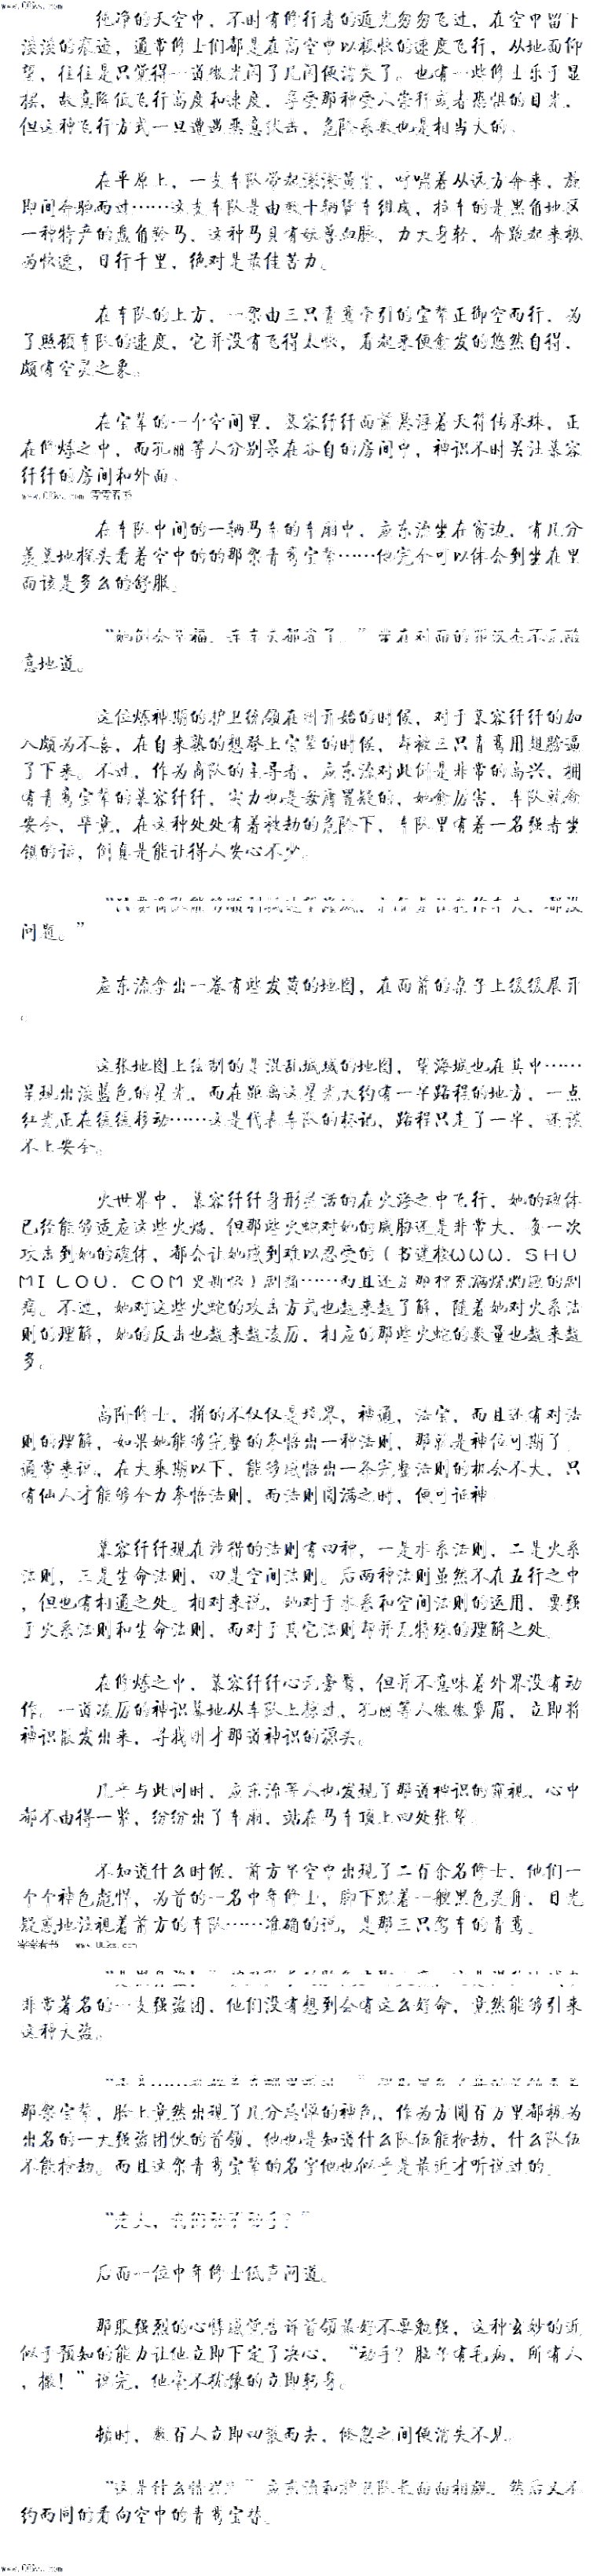 www.00ks.com
纯净的天空中，不时有修行者的遁光匆匆飞过，在空中留下
淡淡的痕迹，通常修士们都是在高空中以极快的速度飞行，从地面仰
望，往往是只觉得一道微光闪了几闪便消失了。也有一些修士乐于显
摆，故意降低飞行高度和速度，享受那种受人崇拜或者恐惧的目光，
但这种飞行方式一旦遭遇恶意伏击，危险系数也是相当大的。
在平原上，一支车队带起滚滚黄尘，呼啸着从远方奔来，旋
即间奔驰而过……这支车队是由数十辆货车组成，拉车的是黑角地区
一种特产的盘角鳞马，这种马具有妖兽血脉，力大身轻，奔跑起来极
为快速，日行千里，绝对是最佳苦力。
在车队的上方，一架由三只青鸾牵引的宝辇正御空而行，为
了照顾车队的速度，它并没有飞得太快，看起来便愈发的悠然自得，
颇有空灵之象。
在宝辇的一个空间里，慕容纤纤面前悬浮着天符传承珠，正
在修炼之中，而孔丽等人分别呆在各自的房间中，神识不时关注慕容
纤纤的房间和外面。
www.00ks.com 零零看书
在车队中间的一辆马车的车厢中，应东流坐在窗边，有几分
羡慕地探头看着空中的的那架青鸾宝辇……他完全可以体会到坐在里
面该是多么的舒服。
意地道。
这位炼神期的护卫统领在刚开始的时候，对于慕容纤纤的加
入颇为不喜，在自来熟的想登上宝辇的时候，却被三只青鸾用翅膀逼
了下来。不过，作为商队的主导者，应东流对此倒是非常的高兴，拥
有青鸾宝辇的慕容纤纤，实力也是毋庸置疑的，她愈厉害，车队就愈
安全，毕竟，在这种处处有着被劫的危险下，车队里有着一名强者坐
镇的话，倒真是能让得人安心不少。
问题。”
应东流拿出一卷有些发黄的地图，在面前的桌子上缓缓展开
。
这张地图上绘制的是混乱城域的地图，望海城也在其中……
呈现出淡蓝色的星光，而在距离这星光大约有一半路程的地方，一点
红光正在缓缓移动……这是代表车队的标记，路程只走了一半，还谈
不上安全。
火世界中，慕容纤纤身形灵活的在火海之中飞行，她的魂体
已经能够适应这些火焰，但那些火蛇对她的威胁还是非常大，每一次
攻击到她的魂体，都会让她感到难以忍受的（书迷楼WWW．SHU
MILOU．COM更新快）剧痛……而且还有那种灵魂烧灼速的剧
痛。不过，她对这些火蛇的攻击方式也越来越了解，随着她对火系法
则的理解，她的反击也越来越凌厉，相应的那些火蛇的数量也越来越
多。
高阶修士，拼的不仅仅是境界，神通，法宝，而且还有对法
则的理解，如果她能够完整的参悟出一种法则，那就是神位可期了，
通常来说，在大乘期以下，能够感悟出一条完整法则的机会不大，只
有仙人才能够全力参悟法则，而法则圆满之时，便可证神。
慕容纤纤现在涉猎的法则有四种，一是水系法则，二是火系
法则，三是生命法则，四是空间法则。后两种法则虽然不在五行之中
，但也有相通之处。相对来说，她对于水系和空间法则的运用，要强
于火系法则和生命法则，而对于其它法则都并无特殊的理解之处。
在修炼之中，慕容纤纤心无旁骛，但并不意味着外界没有动
作。一道凌厉的神识蓦地从车队上掠过，孔丽等人微微蹙眉，立即将
神识散发出来，寻找刚才那道神识的源头。
几乎与此同时，应东流等人也发现了那道神识的窥视，心中
都不由得一紧，纷纷出了车厢，站在马车顶上四处张望。
不知道什么时候，前方半空中出现了二百余名修士，他们一
个个神色彪悍，为首的一名中年修士，脚下踩着一艘黑色灵舟，目光
疑惑地注视着前方的车队……准确的说，是那三只驾车的青鸾。
零零看书 www.00ks.com
非常著名的一支强盗团，他们没有想到会有这么好命，竟然能够引来
这种大盗。
那架宝辇，脸上竟然出现了几分忌惮的神色，作为方圆百万里都极为
出名的一大强盗团伙的首领，他也是知道什么队伍能抢劫，什么队伍
不能抢劫。而且这架青鸾宝辇的名字他也似乎是最近才听说过的。
“老大，我们动不动手？”
后面一位中年修士低声问道。
那股强烈的心悸感觉告诉首领最好不要勉强，这种玄妙的近
似于预知的能力让他立即下定了决心，“动手？脑子有毛病，所有人
，撤！”说完，他毫不犹豫的立即转身。
顿时，数百人立即四散而去，倏忽之间便消失不见。
“这是什么情况？”应东流和护卫队长面面相觑，然后又不
约而同的看向空中的青鸾宝辇。
www.00ks.com